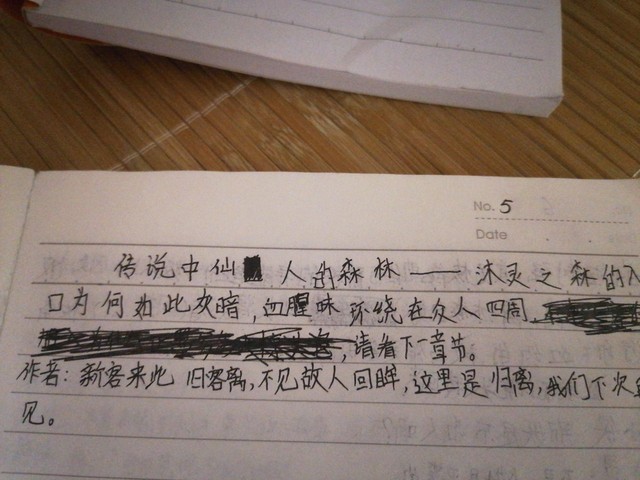 No. 5
Date
传说中仙人的森林——沐灵之森的入
口为何如此灰暗，血腥味环绕在众人四周，
，请看下一章节。
作者：新客来此旧客离，不见故人回眸，这里是归离，我们下次再
见。